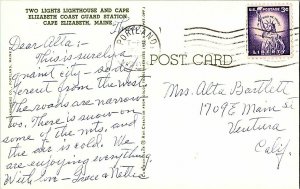 TWO LIGHTS LIGHTHOUSE AND CAPE
ELIZABETH COAST GUARD STATION,
CAPE ELIZABETH, MAINE.
PORTLAND
U.S. POSTAGE
3¢
LIBERTY
POST CARD
Dear Alta:—
This is surely a
quaint city - so dif-
ferent from the west.
The roads are narrow
too. There is snow on
some of the mts. and
the air is cold. We
are enjoying everything
With love - Grace &
Mrs. Alta Bartlett
1709 E Main St
Ventura
Calif.